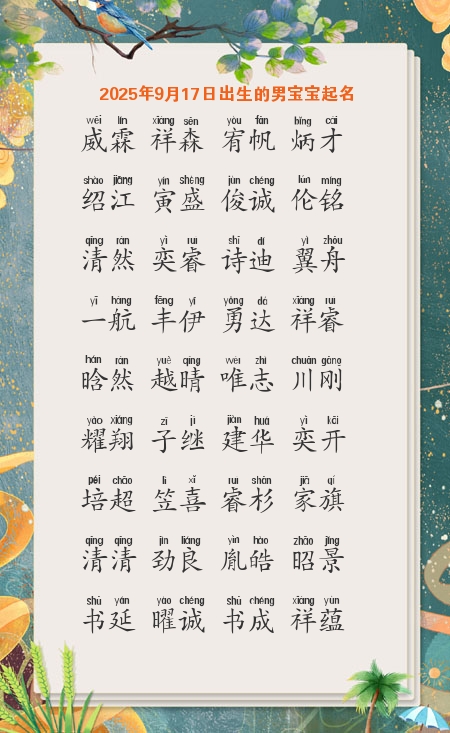 2025年9月17日出生的男宝宝起名
wēi lín xiáng sēn yòu fān bǐng cái
威霖 祥森 宥帆 炳才
shào jiāng yín shèng jùn chéng lún míng
绍江 寅盛 俊诚 伦铭
qīng rán yì ruì shī dí yì zhōu
清然 奕睿 诗迪 翼舟
yī háng fēng yī yǒng dá xiáng ruì
一航 丰伊 勇达 祥睿
hán rán yuè qíng wéi zhì chuān gāng
晗然 越晴 唯志 川刚
yào xiáng zǐ jì jiàn huá yì kāi
耀翔 子继 建华 奕开
péi chāo lì xǐ ruì shān jiā qí
培超 笠喜 睿杉 家旗
qīng qīng jìn liáng yìn hào zhāo jǐng
清清 劲良 胤皓 昭景
shū yán yào chéng shū chéng xiáng yùn
书延 曜诚 书成 祥蕴